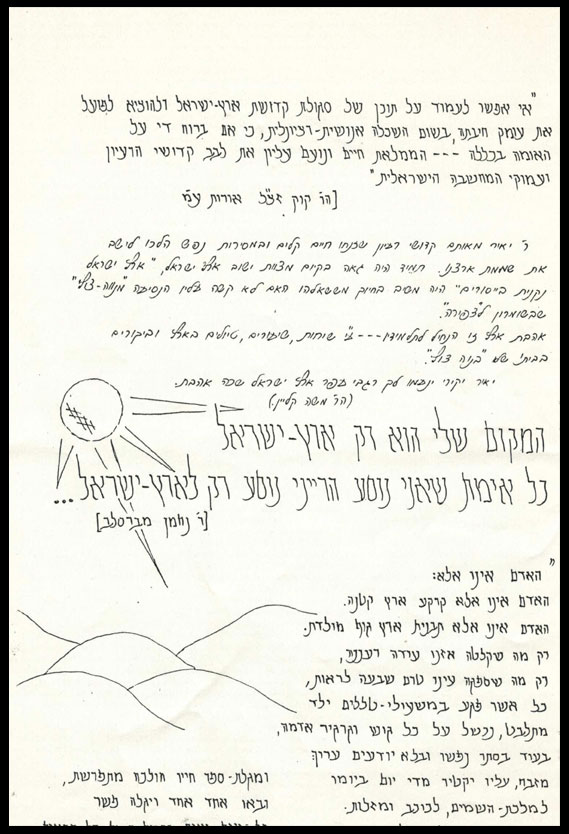 "אי אפשר לעמוד על תוכן של סגולת קדושת ארץ-ישראל ולהוציא לפועל
את עומק חיבתה, בשום השכלה אנושית-רציונלית, כי אם ברוח ד' על
האומה בכללה --- הממלאת חיים ונועם עליון את לבב קדושי הרעיון
ועמוקי המחשבה הישראלית"
[הר' קוק זצ"ל אורות עמ'
ר' יאיר מאותם קדושי רעיון שבנתו חיים קלים ובמסירות נפש הלכו לישב
את שממת ארצנו. תמיד היה גאה בקיום מצוות ישוב ארץ ישראל, "ארץ ישראל
נקנית בייסורים" היה משיב בחיוך מששאלוהו האם לא קשה עליו הנסיעה "מנווה-צוף"
שבשומרון ל"צפירה".
אהבת ארץ זו הנחיל לתלמידיו --- ע"י שיחות, שיעורים, טיולים בארץ וביקורים
בביתו של "בונה צוף".
יאיר יקירי ינעמו לך רגבי עפר ארץ ישראל שכה אהבת.
(הר' משה קליין.)
המקום שלי הוא רק ארץ-ישראל
כל אימת שאני נוסע הריני נוסע רק לארץ-ישראל...
[ר' נחמן מברסלב]
"האדם אינו אלא:
האדם אינו אלא קרקע ארץ קטנה.
האדם אינו אלא תבנית ארץ גוף מולדת.
רק מה שקלטה אזנו עודה רעננה,
רק מה שספקה עינו טרם שבעה לראות,
כל אשר פגע במשעולי-טללים ילד
מתלבט, נכשל על כל גוש וקרקר אדמה,
בעוד בסתר נפשו ובלא יודעים ערוך
מזבח, עליו יקטיר מדי יום ביומו
למלכת-השמים, לכוכב ומזלות.
ומגלת-ספר חייו הולכת מתפרשת,
ובאו אחד אחד ויגלה פשר